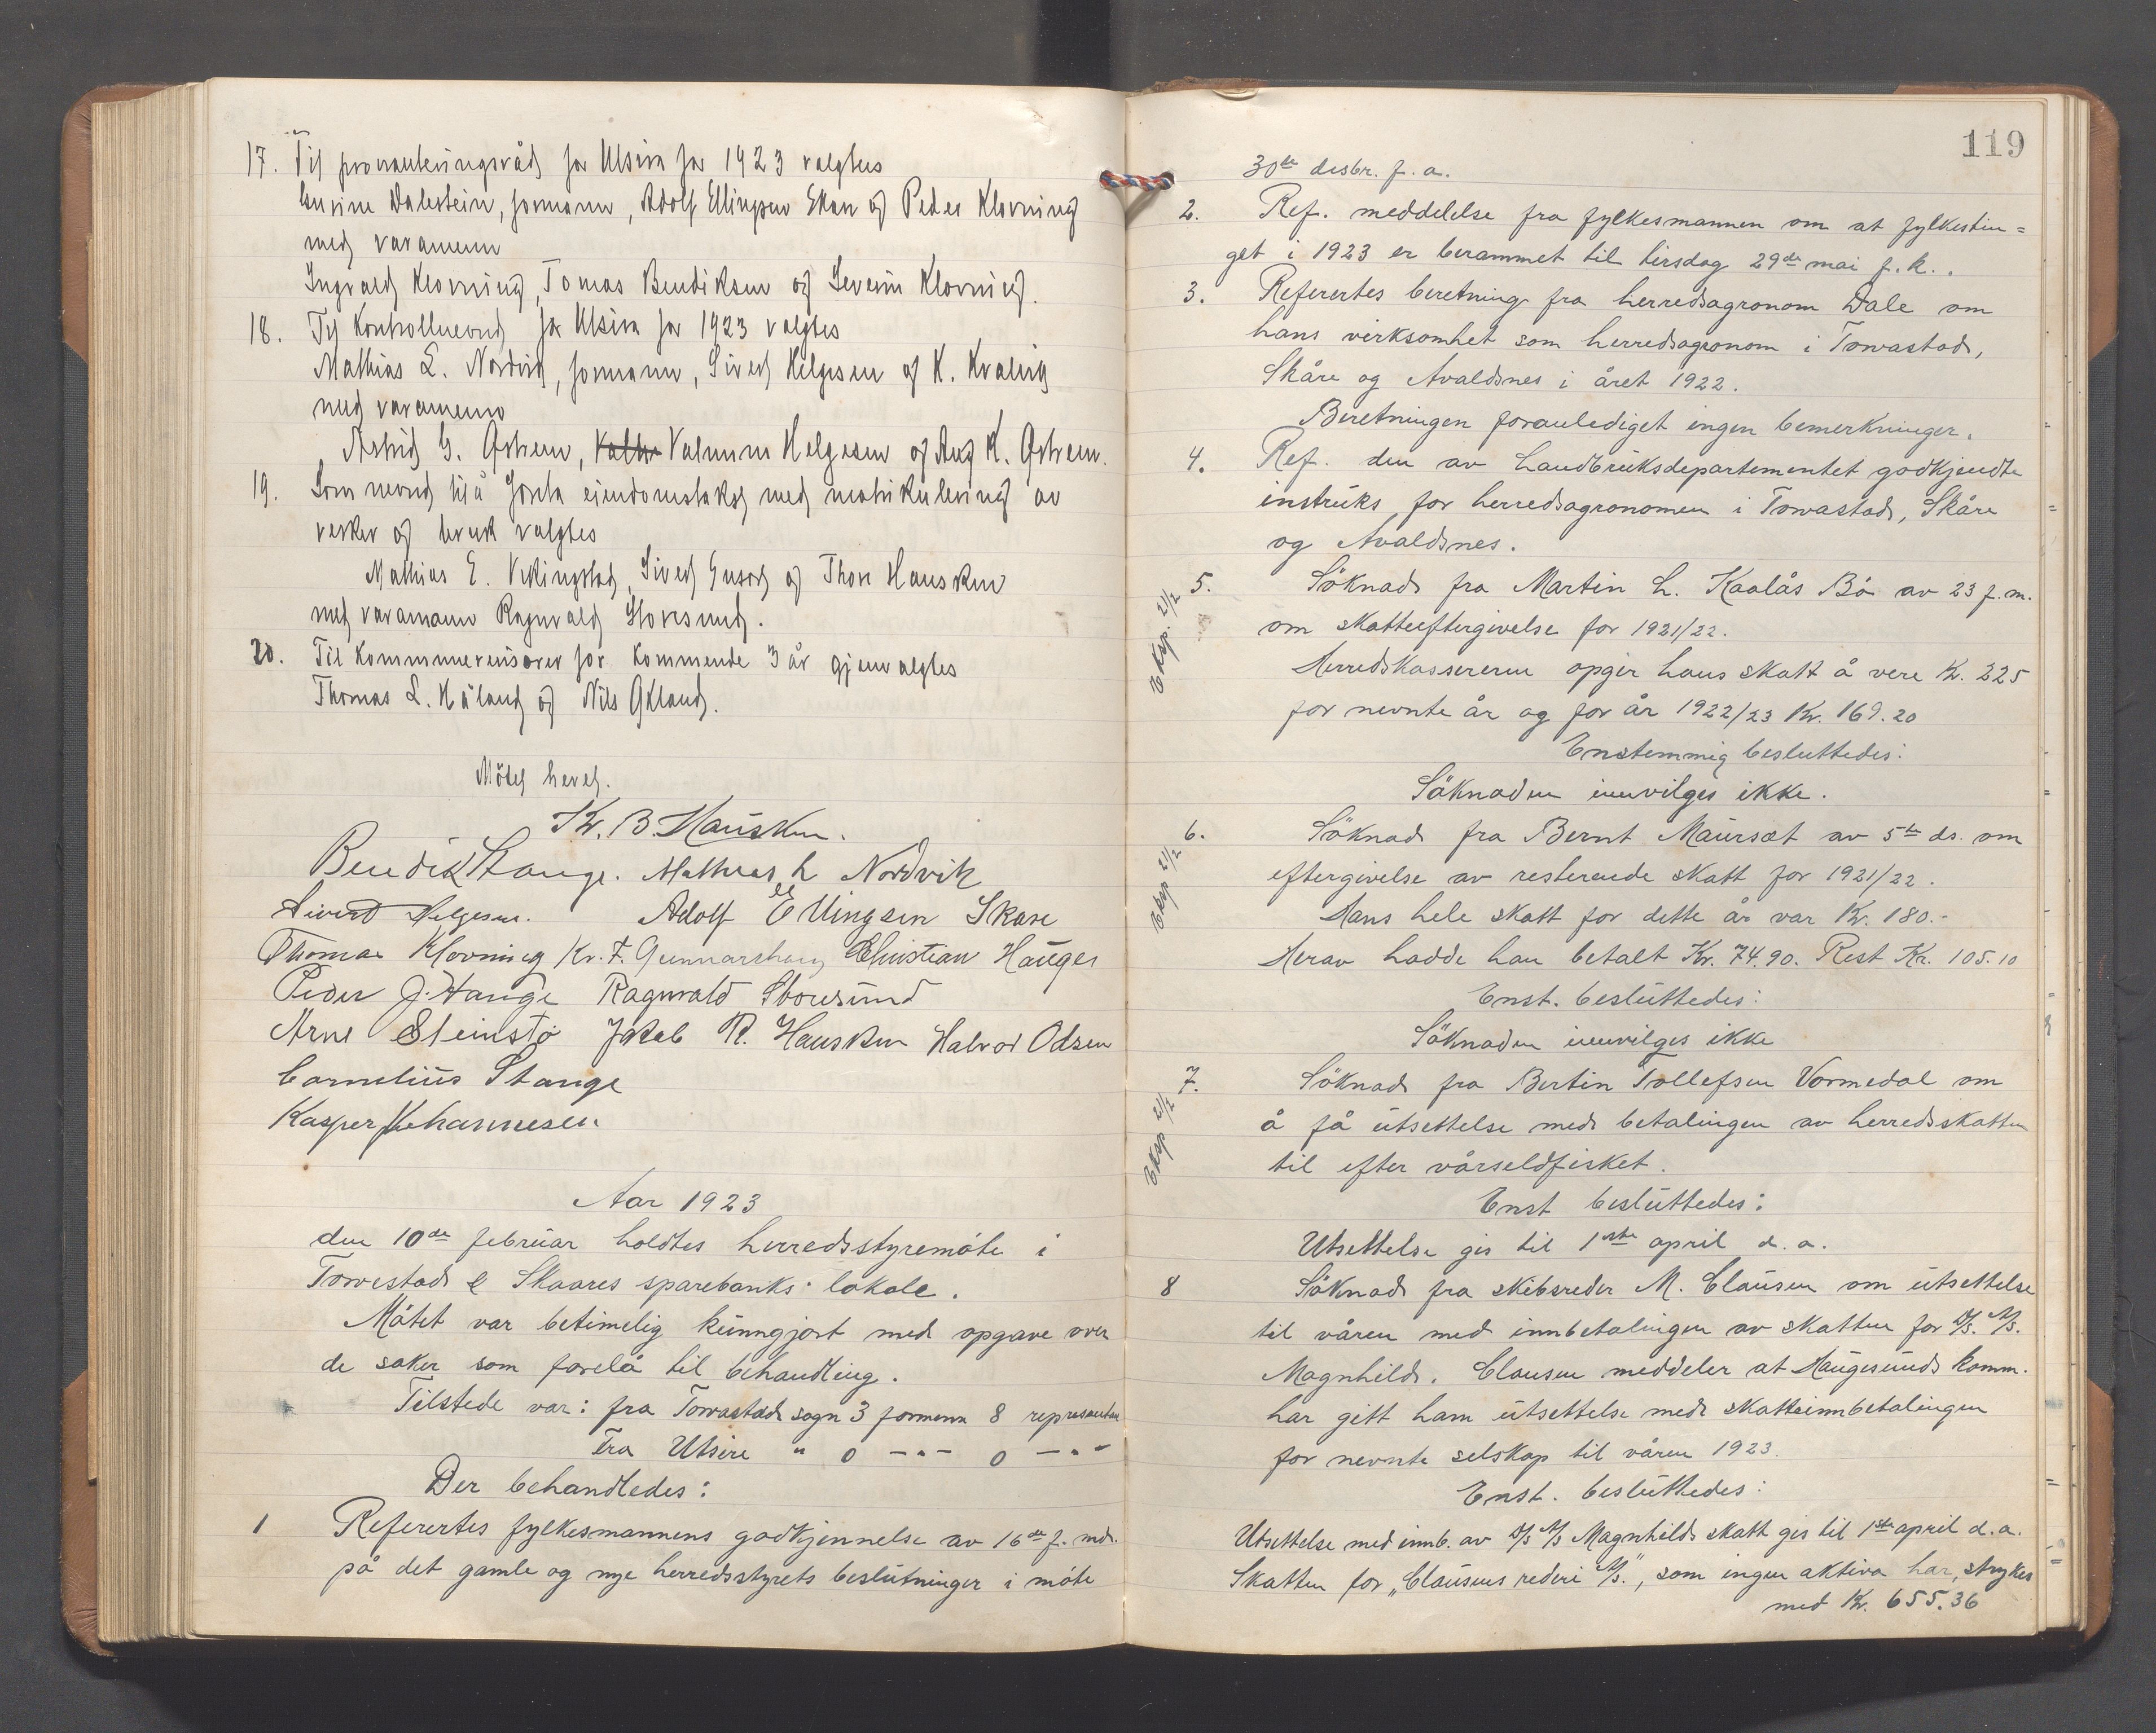 17. Til provianteringsråd for Utsira for 1923 valgtes
Dalestein, formann, Adolf Ellingsen Skare og Peder Klovning
med varamenn
Ingvald Klovning, Tomas Bendiksen og Severin Klovning.
18. Til Kontrollnevnd for Utsira for 1923 valgtes
Mathias L. Nordvik, formann, Sivert Helgesen og K. Kvalevig
med varamenn
Astrid G. Østrem, Valmun Helgesen og Aug K. Østrem.
19. Som nevnd til å foreta eiendomstakst med matrikulering av
verker og bruk valgtes
Mathias E. Vikingstad, Sivert Gusov og Thor Hausken
med varamann Ragnvald Storesund.
20. Til Kommunerevisorer for kommende 3 år gjenvalgtes
Thomas L. Håland og Nils Økland.
Møtet hevet.
Kr. B. Hausken.
Bendik Stange. Mathias L Nordvik
Sivert Helgesen. Adolf Ellingsen Skare
Thomas Klovning Kr. F. Gunnarshaug Christian Hauge
Peder J. Hauge Ragnvald Storesund
Arne Steinstø Jakob R. Hausken Halvor Odsen
Cornelius Stange
Kasper Johannesen.
Aar 1923
den 10de februar holdtes herredsstyremöte i
Torvestad & Skaares sparebanks lokale.
Mötet var betimelig kunngjort med opgave over
de saker som forelå til behandling.
Tilstede var: fra Torvastad sogn 3 formenn 8 representan
Fra Utsire " 0 -"- 0 -"-
Der behandledes:
1 Referertes fylkesmannens godkjennelse av 16de f. md.
på det gamle og nye herredsstyrets beslutninger i möte
119
30te desbr. f. a.
2. Ref. meddelelse fra fylkesmannen om at fylkestin=
get i 1923 er berammet til tirsdag 29de mai f. k..
3. Referertes beretning fra herredsagronom Dale om
hans virksomhet som herredsagronom i Torvastad,
Skåre og Avaldsnes i året 1922.
Beretningen foranlediget ingen bemerkninger.
4. Ref. den av Landbruksdepartementet godkjendte
instruks for herredsagronomen i Torvastad, Skåre
og Avaldsnes.
Eksp. 21/2
5. Söknad fra Martin L. Kaalås Bö av 23 f. m.
om skatteeftergivelse for 1921/22.
Herredskassereren opgir hans skatt å vere Kr. 225
for nevnte år og for år 1922/23 Kr. 169.20
Enstemmig besluttedes:
Söknaden innvilges ikke.
Eksp 21/2
6. Söknad fra Bernt Maursæt av 5te ds. om
eftergivelse av resterende skatt for 1921/22.
Hans hele skatt for dette år var Kr. 180.-
Herav hadde han betalt Kr. 74.90. Rest Kr. 105.10
Enst. besluttedes:
Söknaden innvilges ikke
Eksp 21/2
7. Söknad fra Bertin Tollefsen Vormedal om
å få utsettelse med betalingen av herredsskatten
til efter vårseldfisket.
Enst besluttedes:
Utsettelse gis til 1ste april d. a.
8 Söknad fra skibsreder M. Clausen om utsettelse
til våren med innbetalingen av skatten for D/S. A/S.
Magnhild. Clausen meddeler at Haugesunds komm.
har gitt ham utsettelse med skatteinnbetalingen
for nevnte selskap til våren 1923.
Enst. besluttedes:
Utsettelse med innb. av D/S A/S Magnhilds skatt gis til 1ste april d. a.
Skatten for „Clausens rederi A/S.", som ingen aktiva har, strykes
med Kr. 655.36